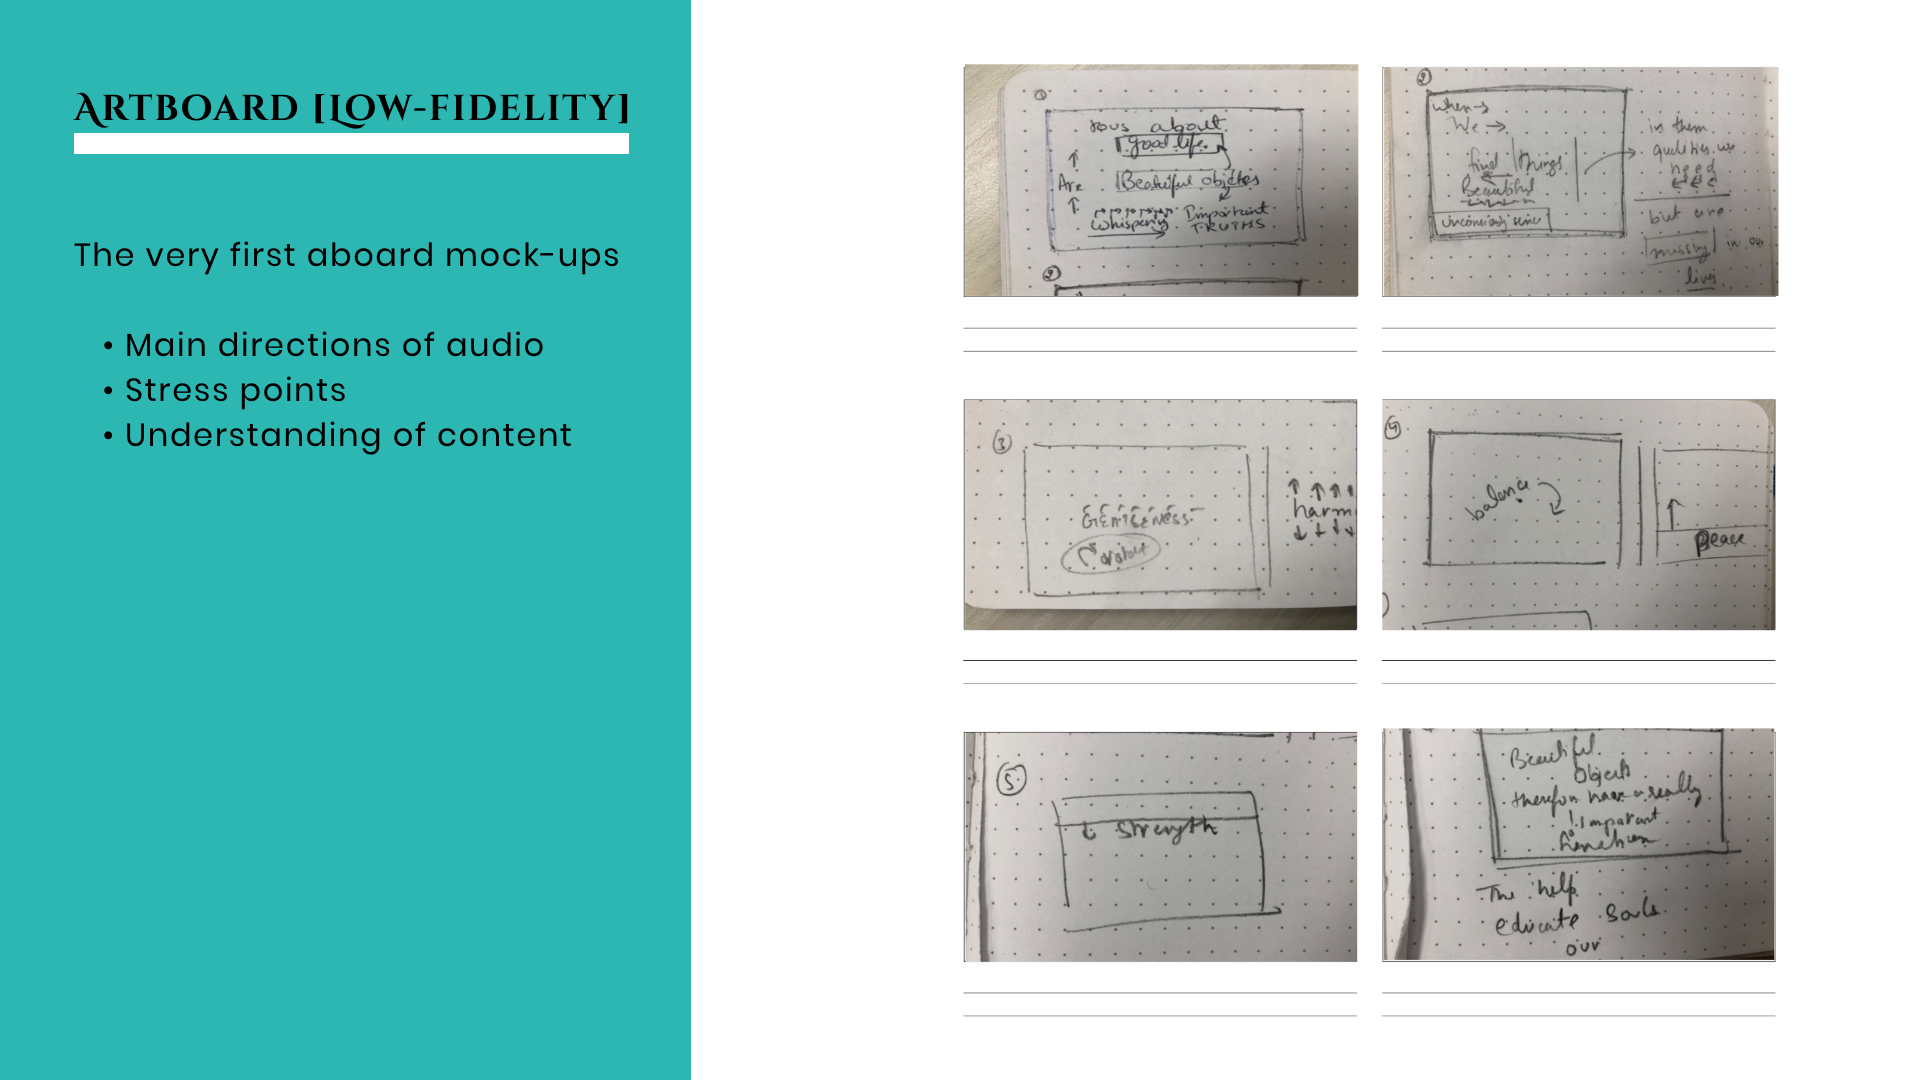 ARTBOARD [LOW-FIDELITY]
The very first aboard mock-ups
• Main directions of audio
• Stress points
• Understanding of content
①
about
good life.
Are
Beautiful objctes
Whispering Important
TRUTHS
②
②
when →
We →
find things
Beautiful
in them
qualities we
need
but are
missing in our
lives
③
harm
④
balance
peace
⑤
↓ Strength
Beautiful
Objects
really
Important
The help
educate Souls
our